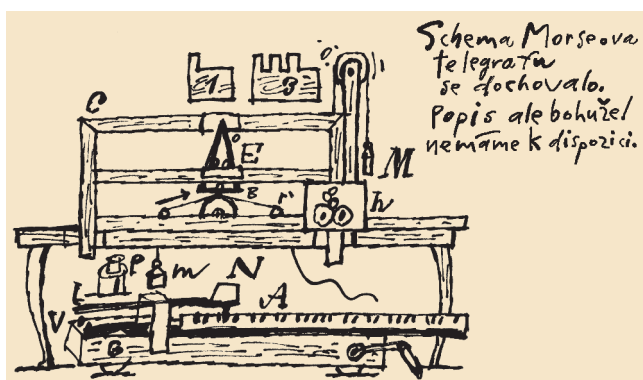 Schema Morseova
telegrafu
se dochovalo.
Popis ale bohužel
nemáme k dispozici.
1 3
C
E
M
B r
h
P m N A
L
V